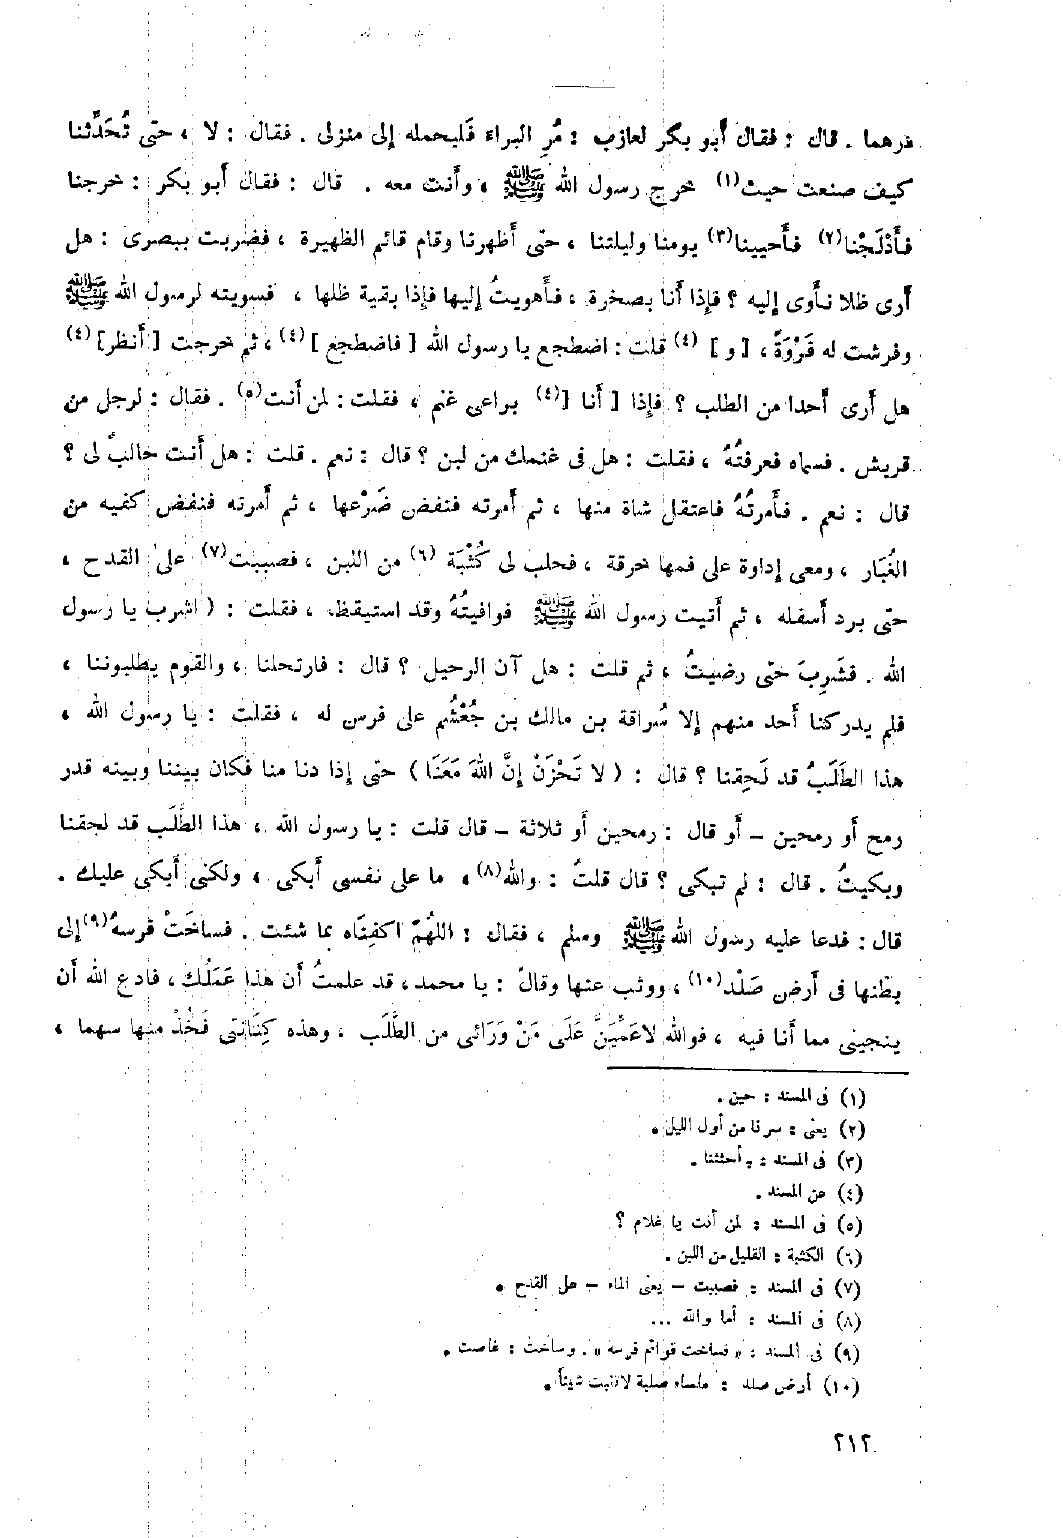 درهما . قال : فقال أبو بكر لعازب : مُرِ البراء فَليحمله إلى منزلى . فقال : لا ، حتى تُحَدِّثنا
كيف صنعت حيث(١) خرج رسول الله ﷺ ، وأنت معه . قال : فقال أبو بكر : خرجنا
فأَدْلَجْنا(٢) فأحيينا(٣) يومنا وليلتنا ، حتى أظهرنا وقام قائم الظهيرة ، فضربت ببصرى : هل
أرى ظلا نأوى إليه ؟ فإذا أنا بصخرة ، فأهويتُ إليها فإذا بقية ظلها ، فسويته لرسول الله ﷺ
وفرشت له فَرْوَةً ، [ و ] (٤) قلت : اضطجع يا رسول الله [ فاضطجع ] (٤) ، ثم خرجت [ أنظر] (٤)
هل أرى أحدا من الطلب ؟ فإذا [ أنا ] (٤) براعى غنم ، فقلت : لمن أنت(٥) . فقال : لرجل من
قريش . فسماه فعرفتُهُ ، فقلت : هل فى غنمك من لبن ؟ قال : نعم . قلت : هل أنت حالبٌ لى ؟
قال : نعم . فأمرتُهُ فاعتقل شاة منها ، ثم أمرته فنفض ضَرْعها ، ثم أمرته فنفض كفيه من
الغُبَار ، ومعى إداوة على فمها خرقة ، فحلب لى كُثْبَة (٦) من اللبن ، فصببت(٧) على القدح ،
حتى برد أسفله ، ثم أتيت رسول الله ﷺ فوافيتُهُ وقد استيقظ ، فقلت : ( اشرب يا رسول
الله . فشَرِبَ حتى رضيتُ ، ثم قلت : هل آن الرحيل ؟ قال : فارتحلنا ، والقوم يطلبوننا ،
فلم يدركنا أحد منهم إلا سُراقة بن مالك بن جُعْشُم على فرس له ، فقلت : يا رسول الله ،
هذا الطَلَبُ قد لَحِقنا ؟ قال : ( لا تَحْزَنْ إِنَّ اللهَ مَعَنَا ) حتى إذا دنا منا فكان بيننا وبينه قدر
رمح أو رمحين – أو قال : رمحين أو ثلاثة – قال قلت : يا رسول الله ، هذا الطَّلَب قد لحقنا
وبكيتُ . قال : لم تبكى ؟ قال قلتُ : والله(٨)، ما على نفسى أبكى ، ولكنى أبكى عليك .
قال : فدعا عليه رسول الله ﷺ وسلم ، فقال : اللهُمّ اكفِنَاه بما شئت . فساخَتْ فرسهُ(٩) إلى
بطنها فى أرض صَلْد(١٠) ، ووثب عنها وقالَ : يا محمد ، قد علمتُ أن هذا عَمَلُك ، فادع الله أن
ينجينى مما أنا فيه ، فوالله لاعَمِّيَنَّ عَلَى مَنْ وَرَائى من الطَّلَب ، وهذه كِنَانَتى فَخُذْ منها سهما ،
(١) فى المسند : حين .
(٢) يعنى : سرنا من أول الليل .
(٣) فى المسند : أحثثنا .
(٤) عن المسند .
(٥) فى المسند : لمن أنت يا غلام ؟
(٦) الكثبة : القليل من اللبن .
(٧) فى المسند : فصببت – يعنى الماء – على القدح .
(٨) فى المسند : أما والله ...
(٩) فى المسند : « فساخت قوائم فرسه » . وساخت : غاصت .
(١٠) أرض صلد : ملساء صلبة لا تنبت شيئاً .
٢١٢